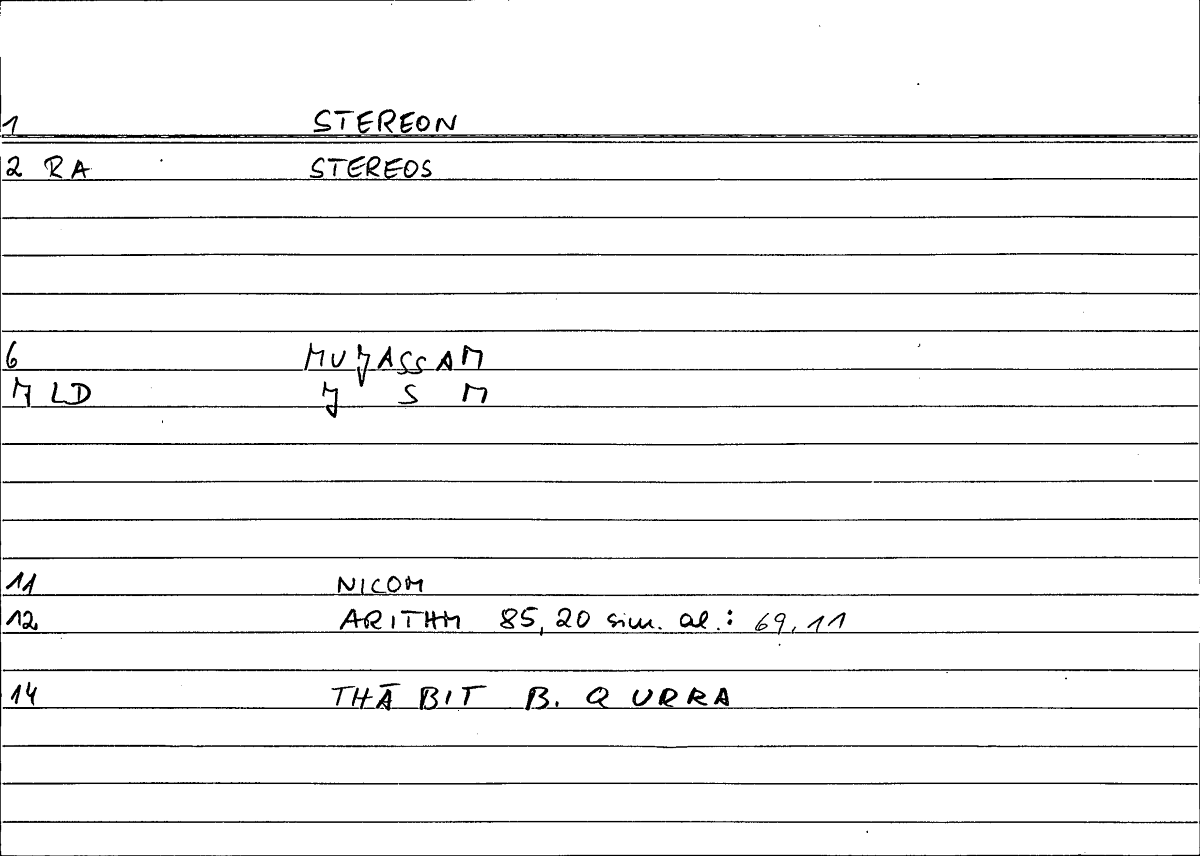 1 STEREON
2 RA STEREOS
6 MUJASSAM
7 LD J S M
11 NICOM
12 ARITHM 85,20 sim. al.: 69,11
14 THĀBIT B. QURRA